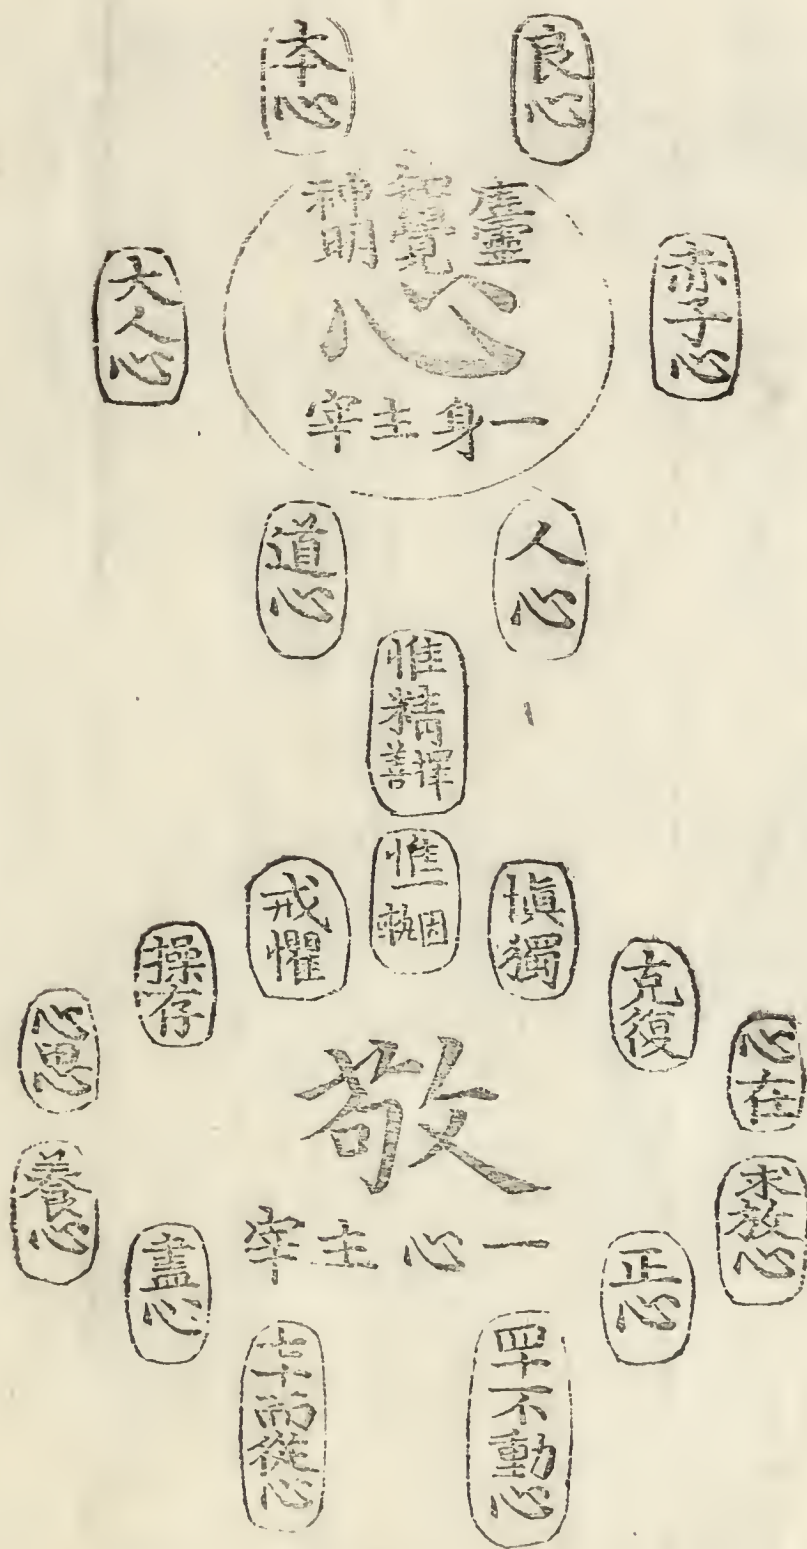 良心
本心
虛靈
知覺
神明
心
一身主宰
赤子心
大人心
人心
道心
惟精
擇善
惟一
固執
愼獨
戒懼
克復
操存
心在
心思
敬
一心主宰
求放心
養心
正心
盡心
四十不動心
七十而從心